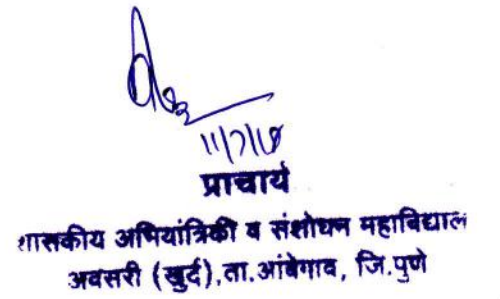 प्राचार्य
शासकीय अभियांत्रिकी व संशोधन महाविद्याल
अवसरी (खुर्द),ता.आंबेगाव, जि.पुणे